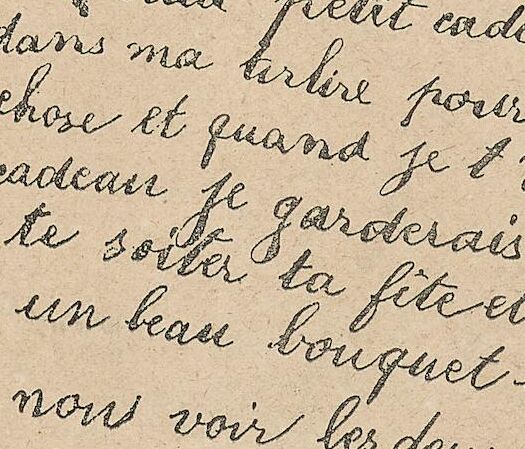 petit cade
dans ma tirlire pour
chose et quand je t
cadeau je garderais
te soiter ta fite et
un beau bouquet
nous voir les deux